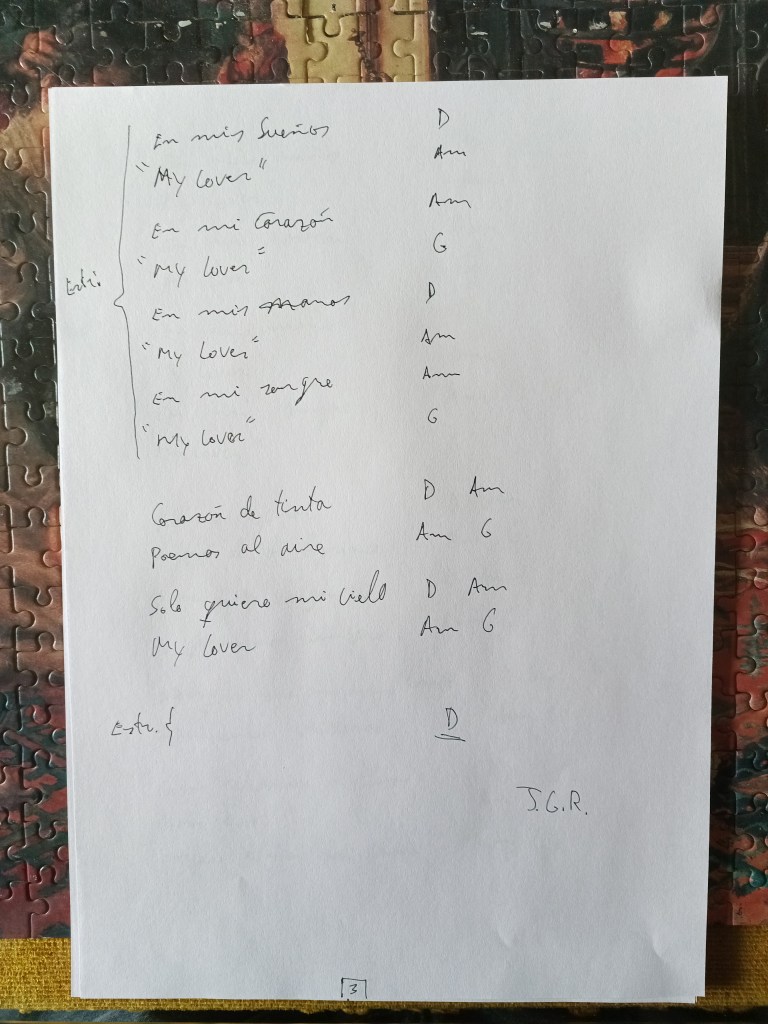 En mis Sueños D
"My Lover" Am
En mi Corazón Am
"My Lover" G
Estri.
En mis manos D
"My Lover" Am
En mi sangre Am
"My Lover" G
Corazón de tinta D Am
Poemas al aire Am G
Solo quiero mi cielo D Am
My Lover Am G
Estr. { D
J.G.R.
3